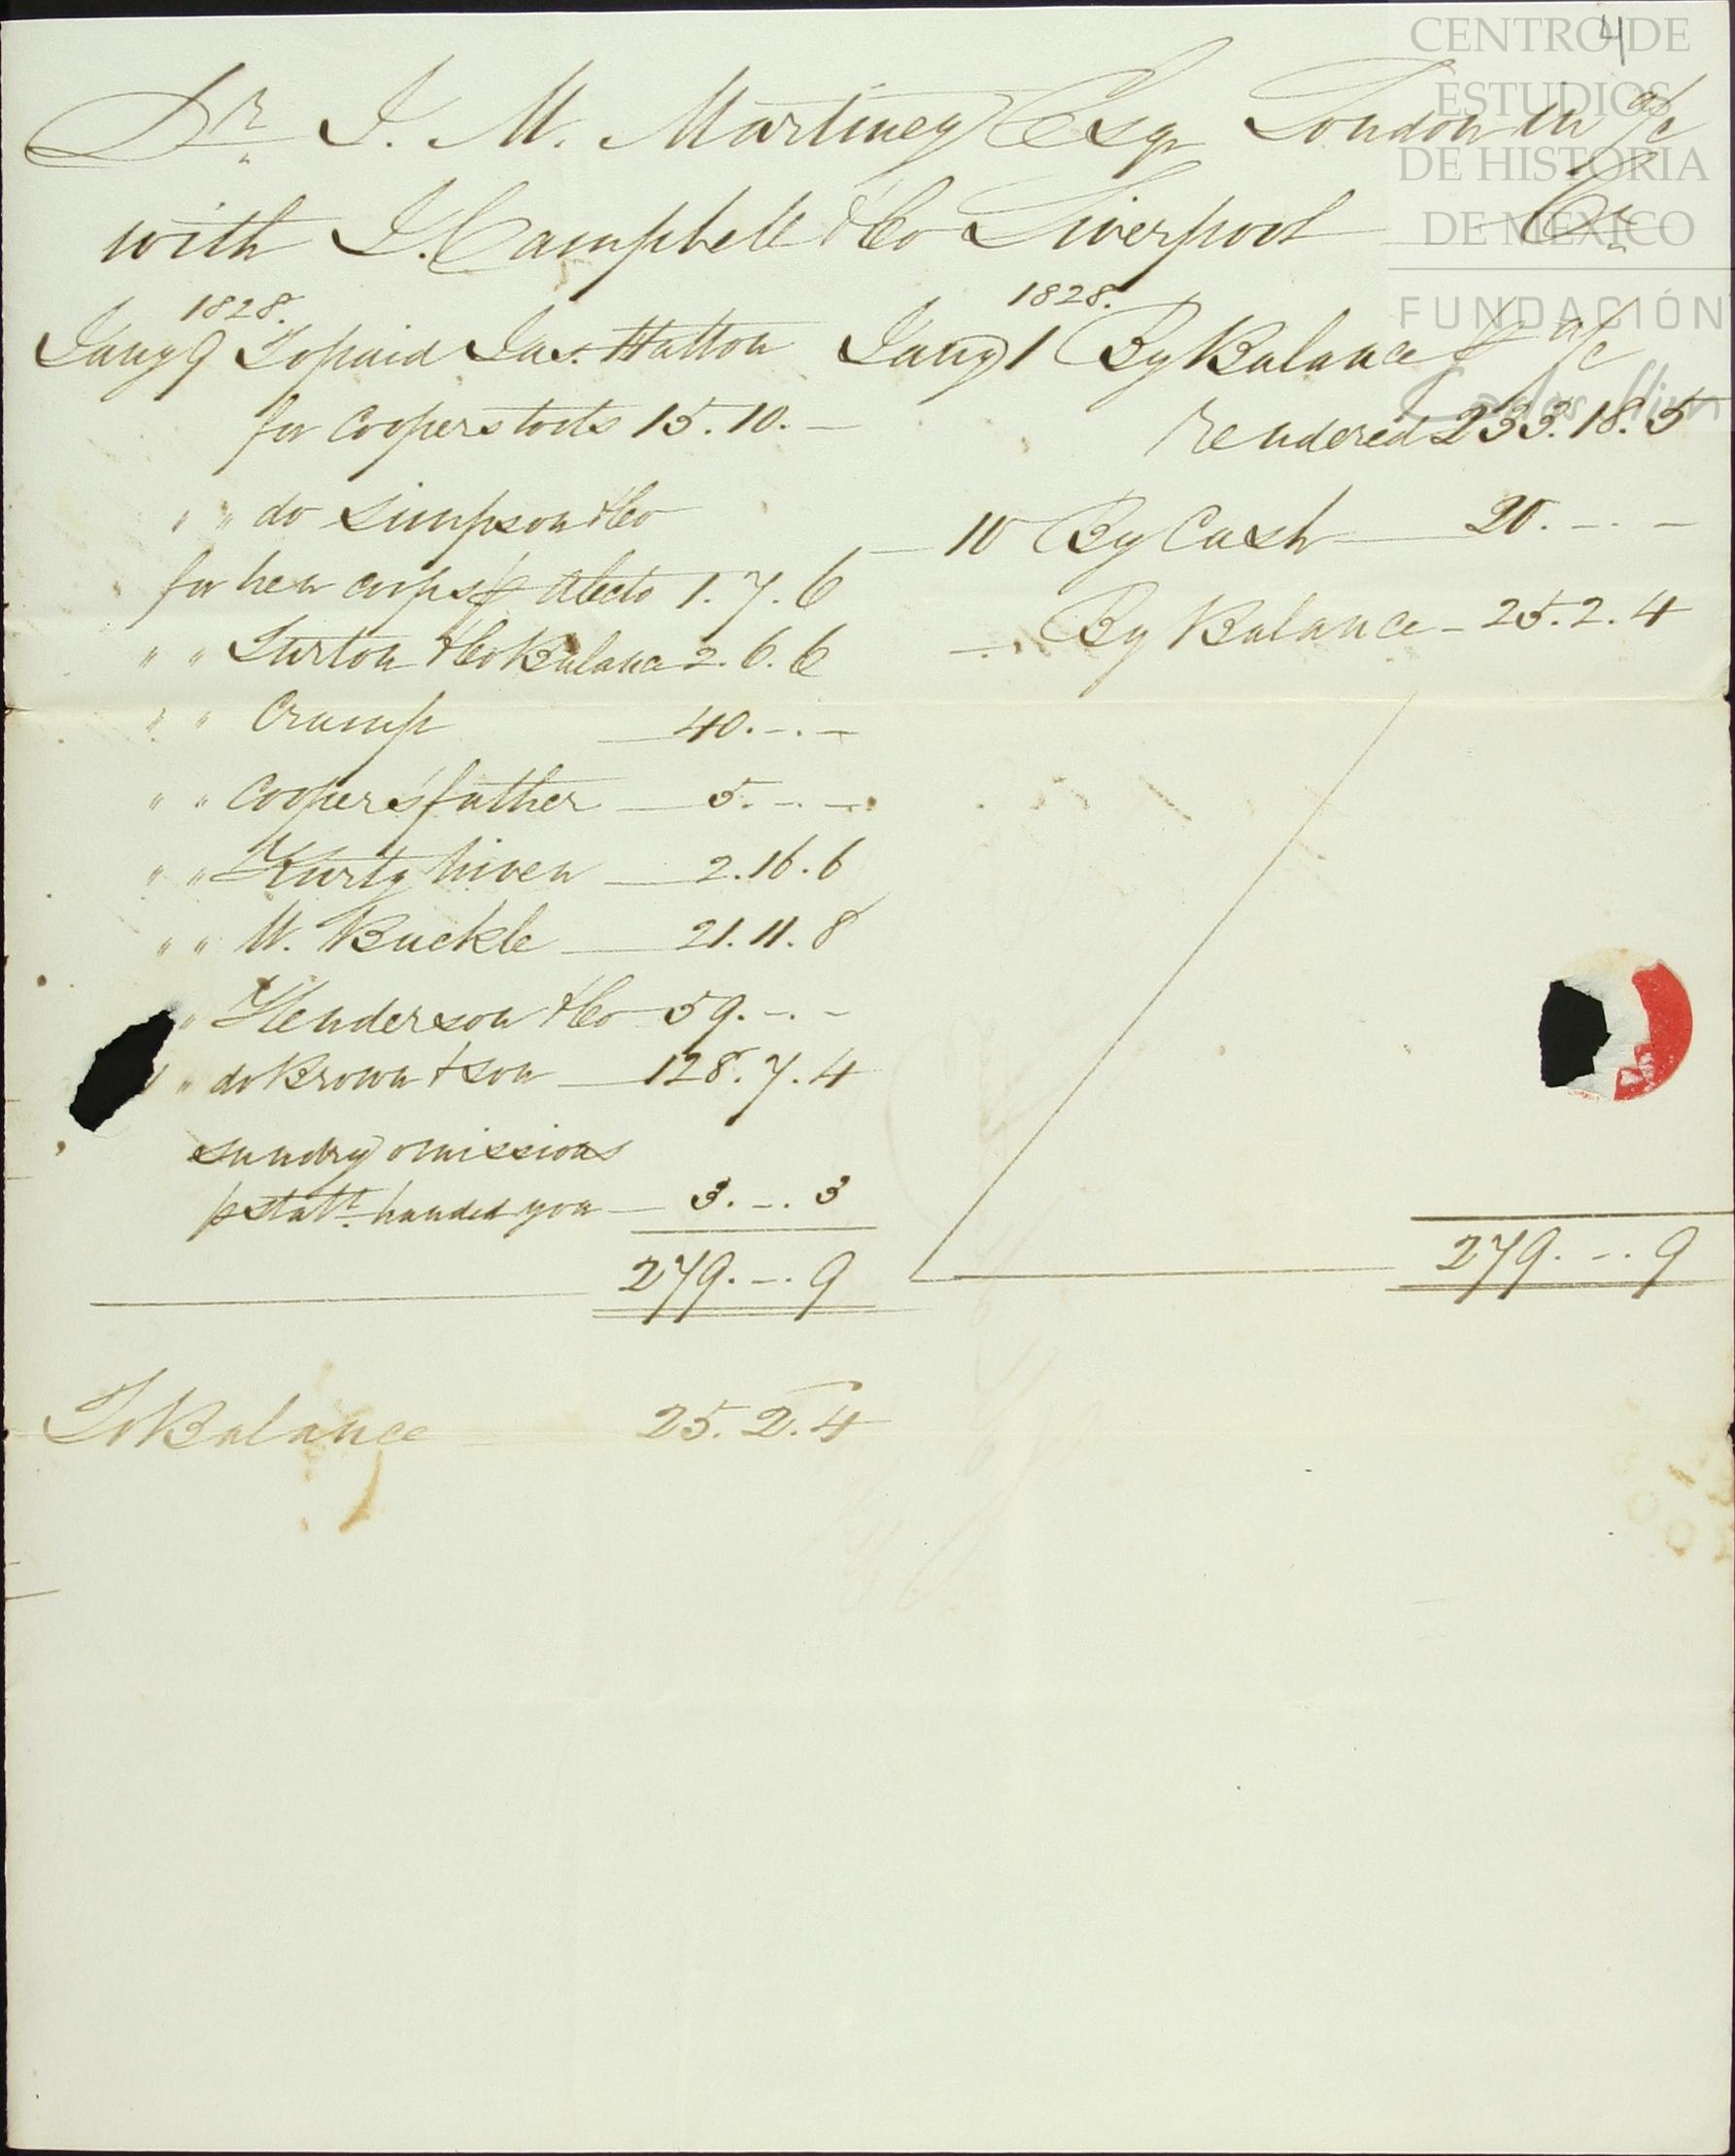 4
CENTRO DE
ESTUDIOS
DE HISTORIA
DE MÉXICO
FUNDACIÓN
Carlos Slim
Dr. J. M. Martinez Esqr London in a/c
with J. Campbell & Co Liverpool Cr
1828.
Jany 9 To paid Jas. Hatton
for Coopers tools 15.10.-
" " do Simpson & Co
for hen coops p Alecto 1.7.6
" " Turton & Co Balance 2.6.6
" " Crump 40.-.-
" " Cooper's father 5.-.-
" " Kurtz 2.16.6
" " W. Buckle 21.11.8
" Henderson & Co 59.-.-
" " do Brown & Son 128.7.4
sundry omissions
p statt. handed you 3.-.3
279.-.9
To Balance 25.2.4
1828.
Jany 1 By Balance p a/c
rendered 233.18.5
10 By Cash 20.-.-
By Balance - 25.2.4
279.-.9